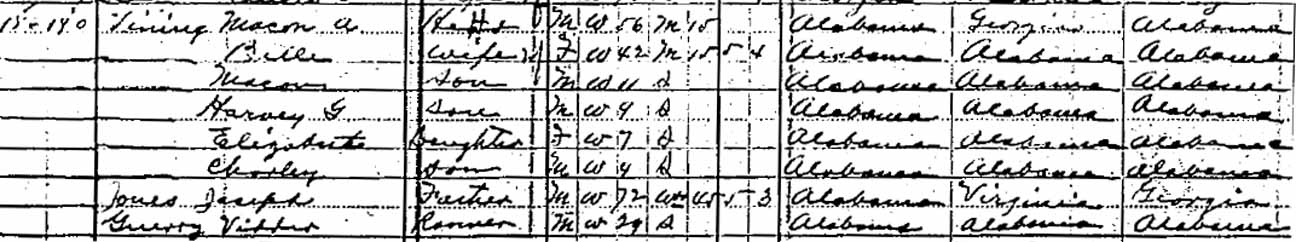 15-190 Vining Macon A Head M W 56 M 15 Alabama Georgia Alabama
Belle Wife F W 42 M 15 5 4 Alabama Alabama Alabama
Macon Son M W 11 S Alabama Alabama Alabama
Harvey G Son M W 9 S Alabama Alabama Alabama
Elizabeth Daughter F W 7 S Alabama Alabama Alabama
Charley Son M W 4 S Alabama Alabama Alabama
Jones Joseph Father M W 72 Wd 45 5 3 Alabama Virginia Georgia
Guerry Roomer M W 29 S Alabama Alabama Alabama